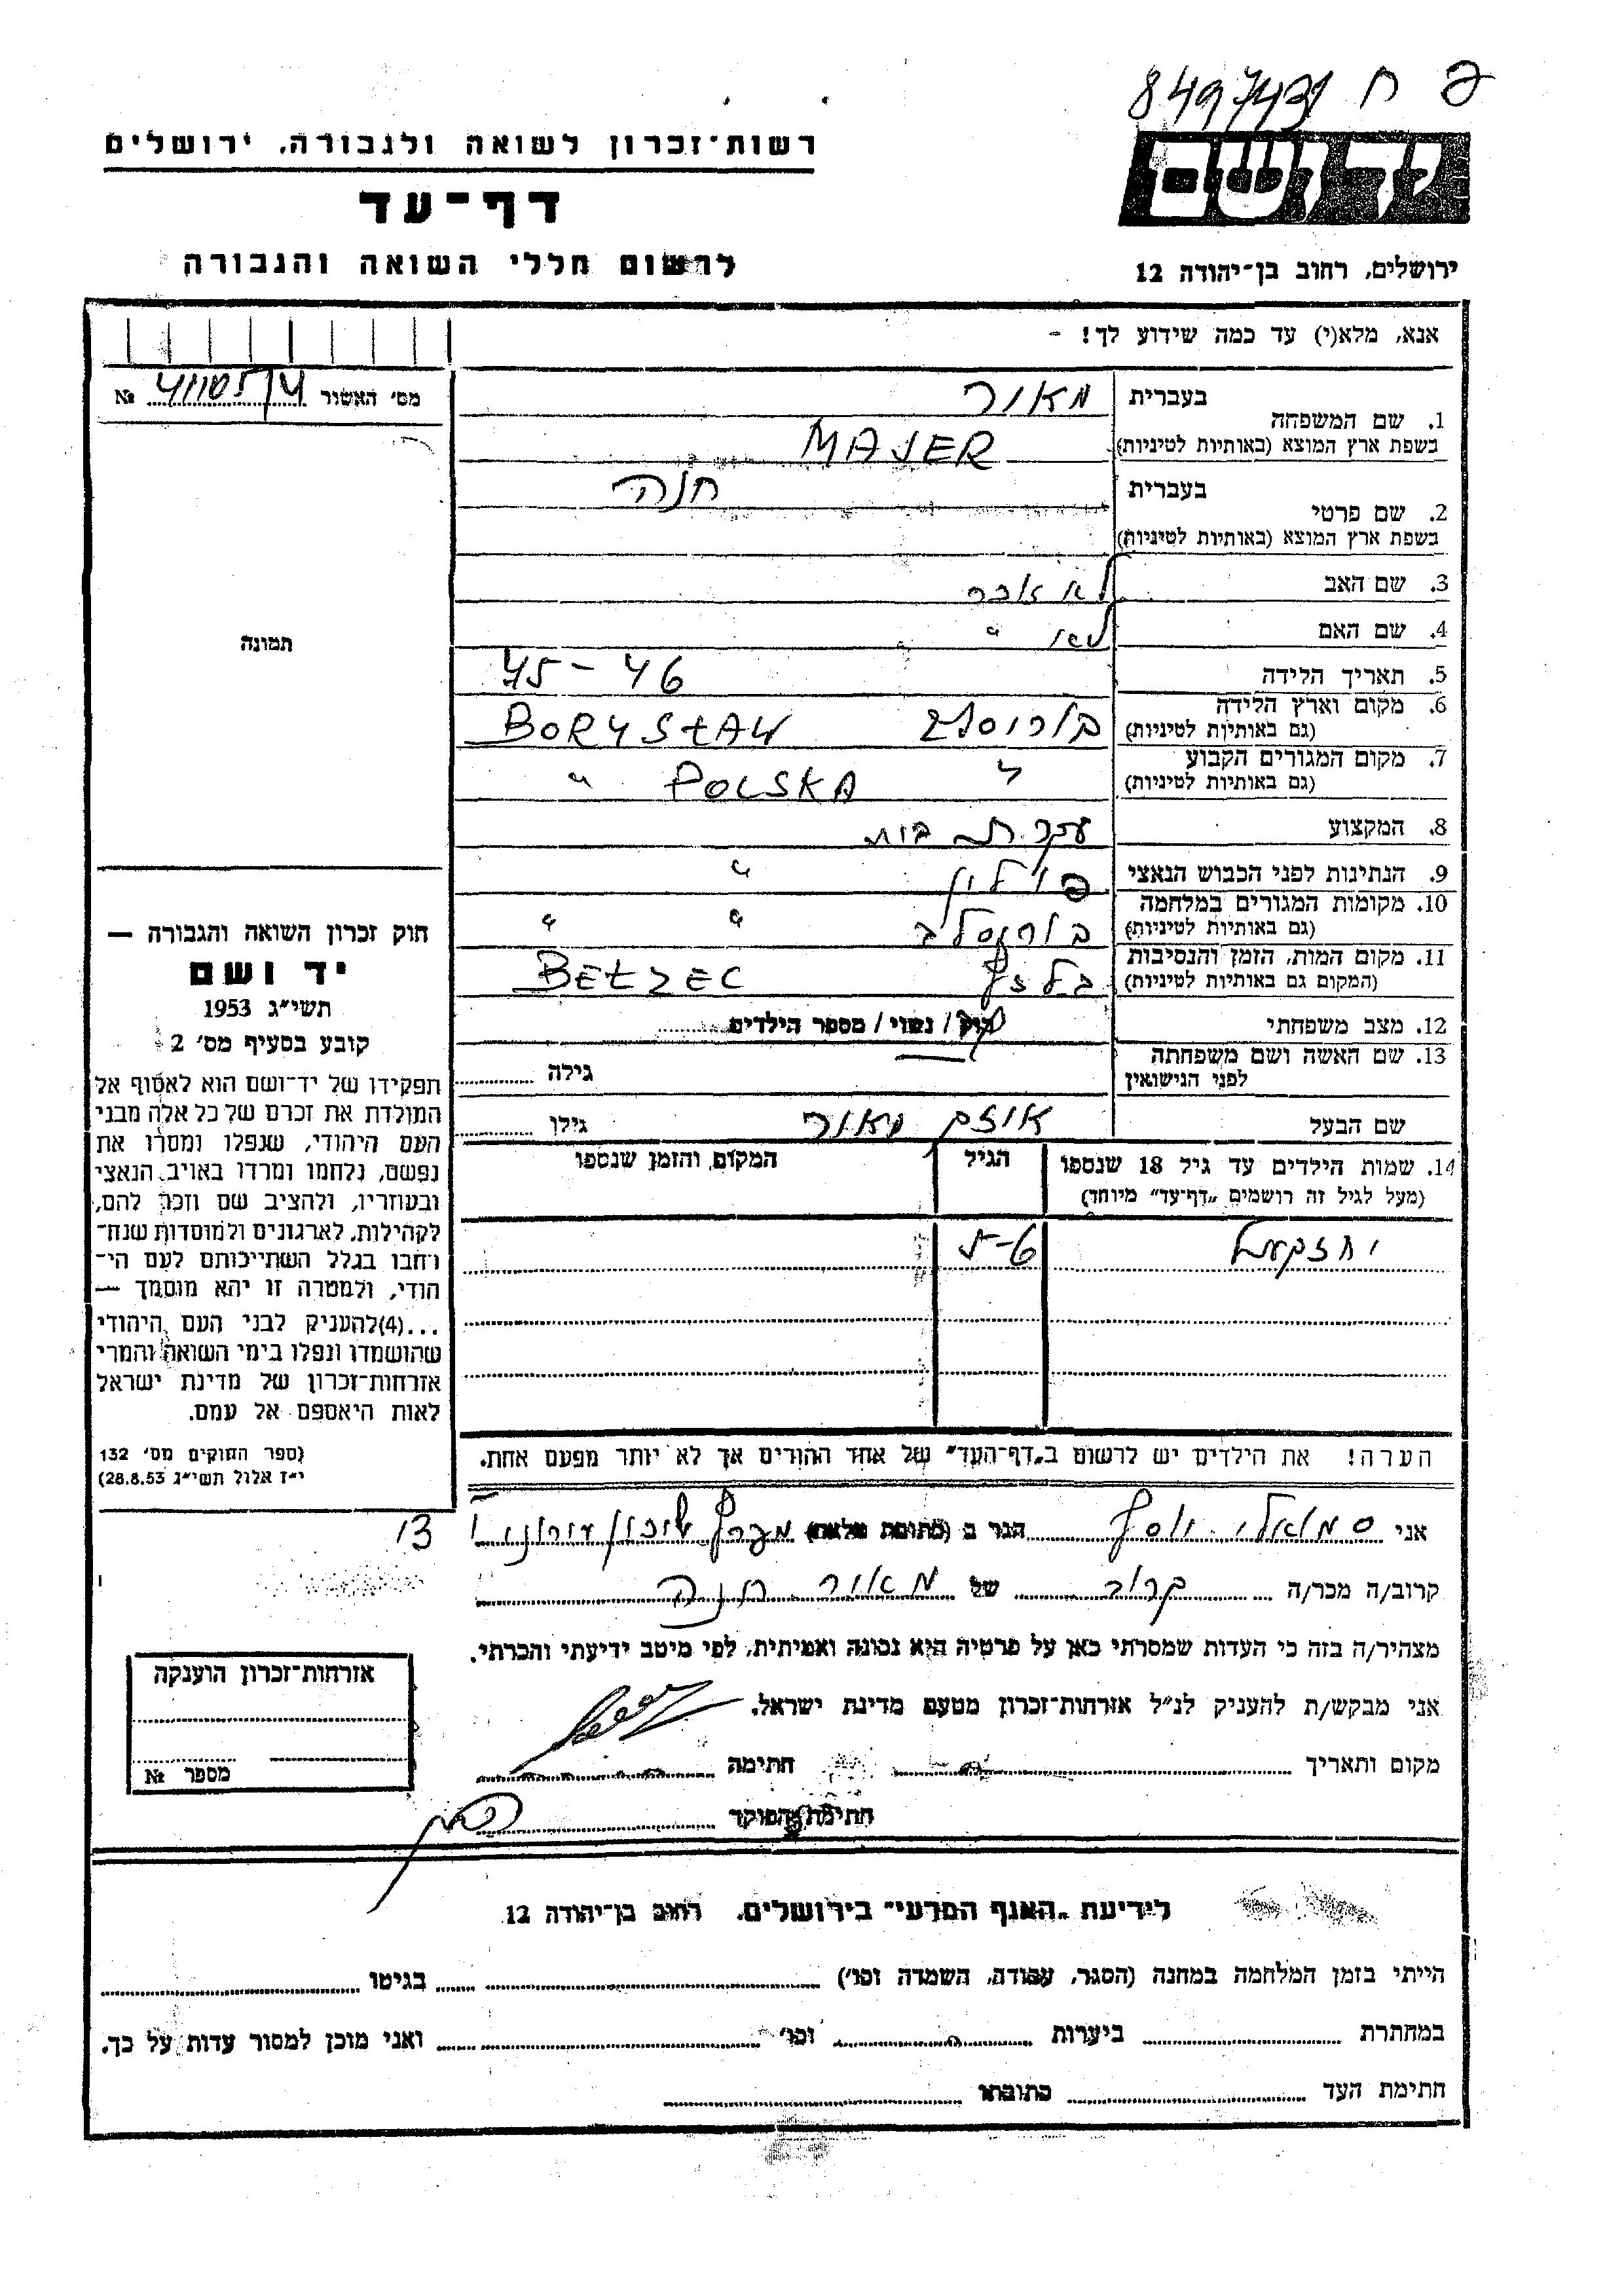 פ ח 8497431
יד ושם
רשות־זכרון לשואה ולגבורה, ירושלים
דף־עד
לרשום חללי השואה והגבורה
ירושלים, רחוב בן־יהודה 12
אנא, מלא(י) עד כמה שידוע לך! -
מס' האשור №
1. שם המשפחה
בעברית מאור
בשפת ארץ המוצא (באותיות לטיניות) MAJER
2. שם פרטי
בעברית חנה
בשפת ארץ המוצא (באותיות לטיניות)
3. שם האב לא
4. שם האם לא "
5. תאריך הלידה 45-46
6. מקום וארץ הלידה
(גם באותיות לטיניות) BORYSŁAW
7. מקום המגורים הקבוע
(גם באותיות לטיניות) " POLSKA "
8. המקצוע עקרת בית
9. הנתינות לפני הכבוש הנאצי פולין "
10. מקומות המגורים במלחמה
(גם באותיות לטיניות) בוריסלב " "
11. מקום המות, הזמן והנסיבות
(המקום גם באותיות לטיניות) בלזץ BEŁZEC
12. מצב משפחתי רוק / נשוי / מספר הילדים
13. שם האשה ושם משפחתה
לפני הנישואין גילה
שם הבעל מאור גילו
14. שמות הילדים עד גיל 18 שנספו
(מעל לגיל זה רושמים „דף־עד" מיוחד)
הגיל
המקום והזמן שנספו
יחזקאל
הערה! את הילדים יש לרשום ב„דף־העד" של אחד ההורים אך לא יותר מפעם אחת.
תמונה
חוק זכרון השואה והגבורה —
יד ושם
תשי"ג 1953
קובע בסעיף מס' 2
תפקידו של יד־ושם הוא לאסוף אל
המולדת את זכרם של כל אלה מבני
העם היהודי, שנפלו ומסרו את
נפשם, נלחמו ומרדו באויב הנאצי
ובעוזריו, ולהציב שם וזכר להם,
לקהילות, לארגונים ולמוסדות שנח־
רבו בגלל השתייכותם לעם הי־
הודי, ולמטרה זו יהא מוסמך —
...(4)להעניק לבני העם היהודי
שהושמדו ונפלו בימי השואה והמרי
אזרחות־זכרון של מדינת ישראל
לאות היאספם אל עמם.
(ספר החוקים מס' 132
י"ז אלול תשי"ג 28.8.53)
אני יוסף הגר ב (כתובת מלאה) שיכון 13
קרוב/ה מכר/ה קרוב של מאור חנה
מצהיר/ה בזה כי העדות שמסרתי כאן על פרטיה היא נכונה ואמיתית, לפי מיטב ידיעתי והכרתי.
אני מבקש/ת להעניק לנ"ל אזרחות־זכרון מטעם מדינת ישראל.
מקום ותאריך חתימה
חתימת הפוקד
אזרחות־זכרון הוענקה
מספר №
לידיעת „האגף המדעי" בירושלים, רחוב בן־יהודה 12
הייתי בזמן המלחמה במחנה (הסגר, עבודה, השמדה וכו') בגיטו
במחתרת ביערות וכו' ואני מוכן למסור עדות על כך.
חתימת העד כתובתו